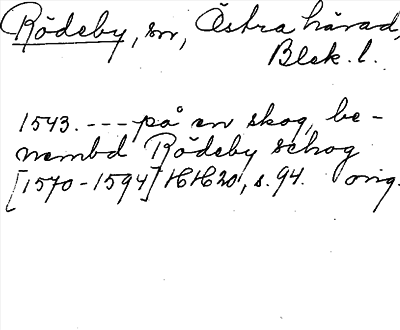 Rödeby, sn, Östra härad,
Blek. l.
1543. --- på en skog, be-
nembd Rödeby schog
[1570-1594] HH20, s. 94. orig.